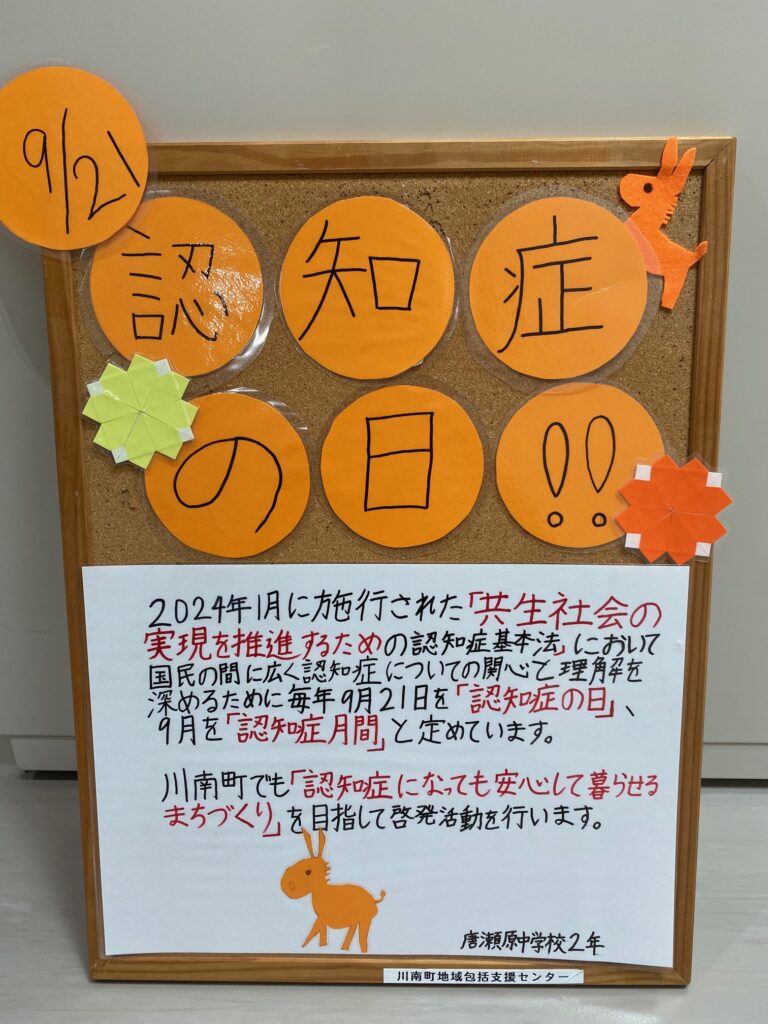 9/21
認知症
の日!!
2024年1月に施行された「共生社会の
実現を推進するための認知症基本法」において
国民の間に広く認知症についての関心と理解を
深めるために毎年9月21日を「認知症の日」、
9月を「認知症月間」と定めています。
川南町でも「認知症になっても安心して暮らせる
まちづくり」を目指して啓発活動を行います。
唐瀬原中学校2年
川南町地域包括支援センター